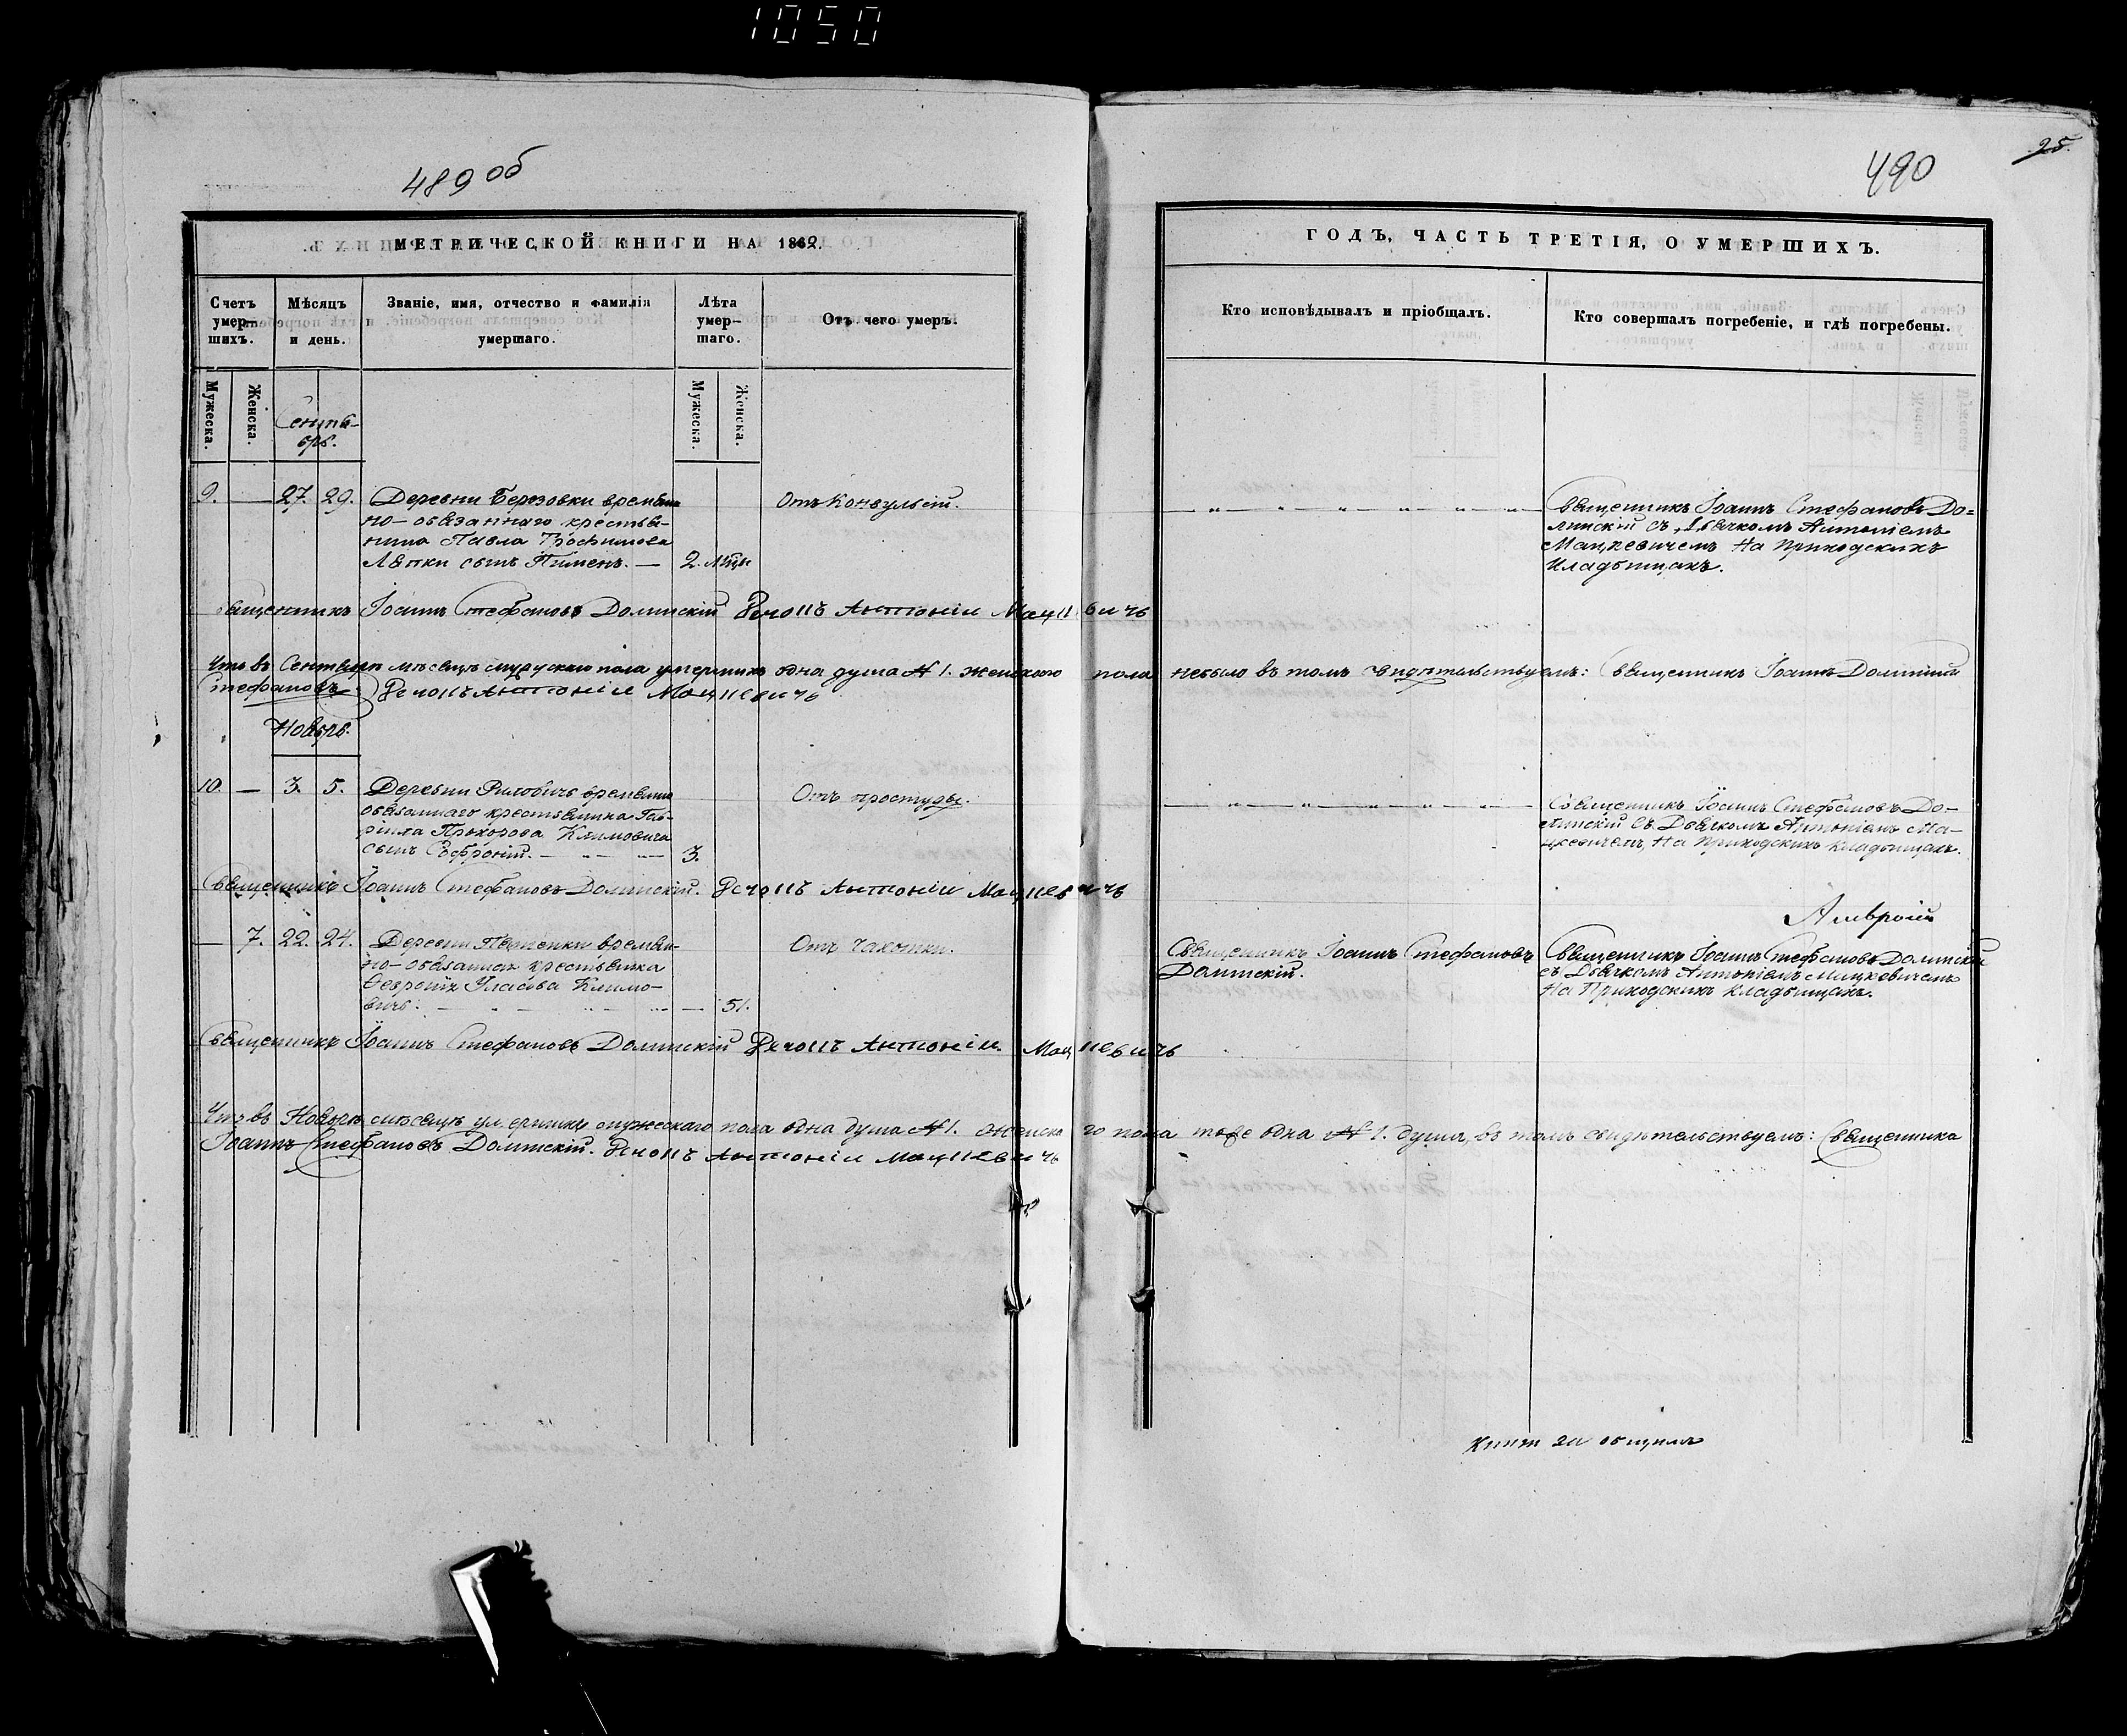 1050
489 об
МЕТРИЧЕСКОЙ КНИГИ НА 1862.
Счетъ умер-шихъ.
Мѣсяцъ и день.
Званіе, имя, отчество и фамилія умершаго.
Лѣта умер-шаго.
Отъ чего умеръ.
Мужеска.
Женска.
Мужеска.
Женска.
Сентя-
брь.
9. — 27. 29. Деревни Березовки времѣнно
но-обязаннаго крестья-
нина Павла Трофимова
Лѣпки сынъ Пименъ. — 2. мѣц.
Отъ Конвульсій.
Священникъ Іоаннъ Стефановъ Долинскій Дячокъ Антоній Мацкевичъ
Что въ Сентябрѣ мѣсяцѣ мужскаго пола умершихъ одна душа № 1. женскаго пола небыло въ томъ свидѣтельствуемъ: Священникъ Іоаннъ Долинскій
Стефановъ. Дячокъ Антоній Мацкевичъ
Ноябрь.
10. — 3. 5. Деревни временно
обязаннаго крестьянина Гав-
ріила Прохорова Климовича
сынъ Софроній. — 3.
Отъ простуды.
Священникъ Іоаннъ Стефановъ Долинскій. Дячокъ Антоній Мацкевичъ
— 7. 22. 24. Деревни времѣн-
но-обязанная крестьянка
Февронія Власова Климо-
вичъ. — 51.
Отъ чахотки.
Священникъ Іоаннъ Стефановъ Долинскій Дячокъ Антоній Мацкевичъ
Что въ Ноябрѣ мѣсяцѣ умершихъ мужескаго пола одна душа № 1. женскаго пола тоже одна № 1. душа, въ томъ свидѣтельствуемъ: Священника
Іоаннъ Стефановъ Долинскій. Дячокъ Антоній Мацкевичъ
25.
490
ГОДЪ, ЧАСТЬ ТРЕТІЯ, О УМЕРШИХЪ.
Кто исповѣдывалъ и пріобщалъ.
Кто совершалъ погребеніе, и гдѣ погребены.
Священникъ Іоаннъ Стефановъ До=
линскій съ Дьячкомъ Антоніемъ
Мацкевичемъ На приходскихъ
Кладбищахъ.
Священникъ Іоаннъ Стефановъ До-
линскій съ Дьячкомъ Антоніемъ Ма-
цкевичемъ, На Приходскихъ кладбищахъ.
Священникъ Іоаннъ Стефановъ
Долинскій.
Амвросій
Священникъ Іоаннъ Стефановъ Долинскій
съ Дьячкомъ Антоніемъ Мацкевичемъ
На Приходскихъ кладбищахъ.